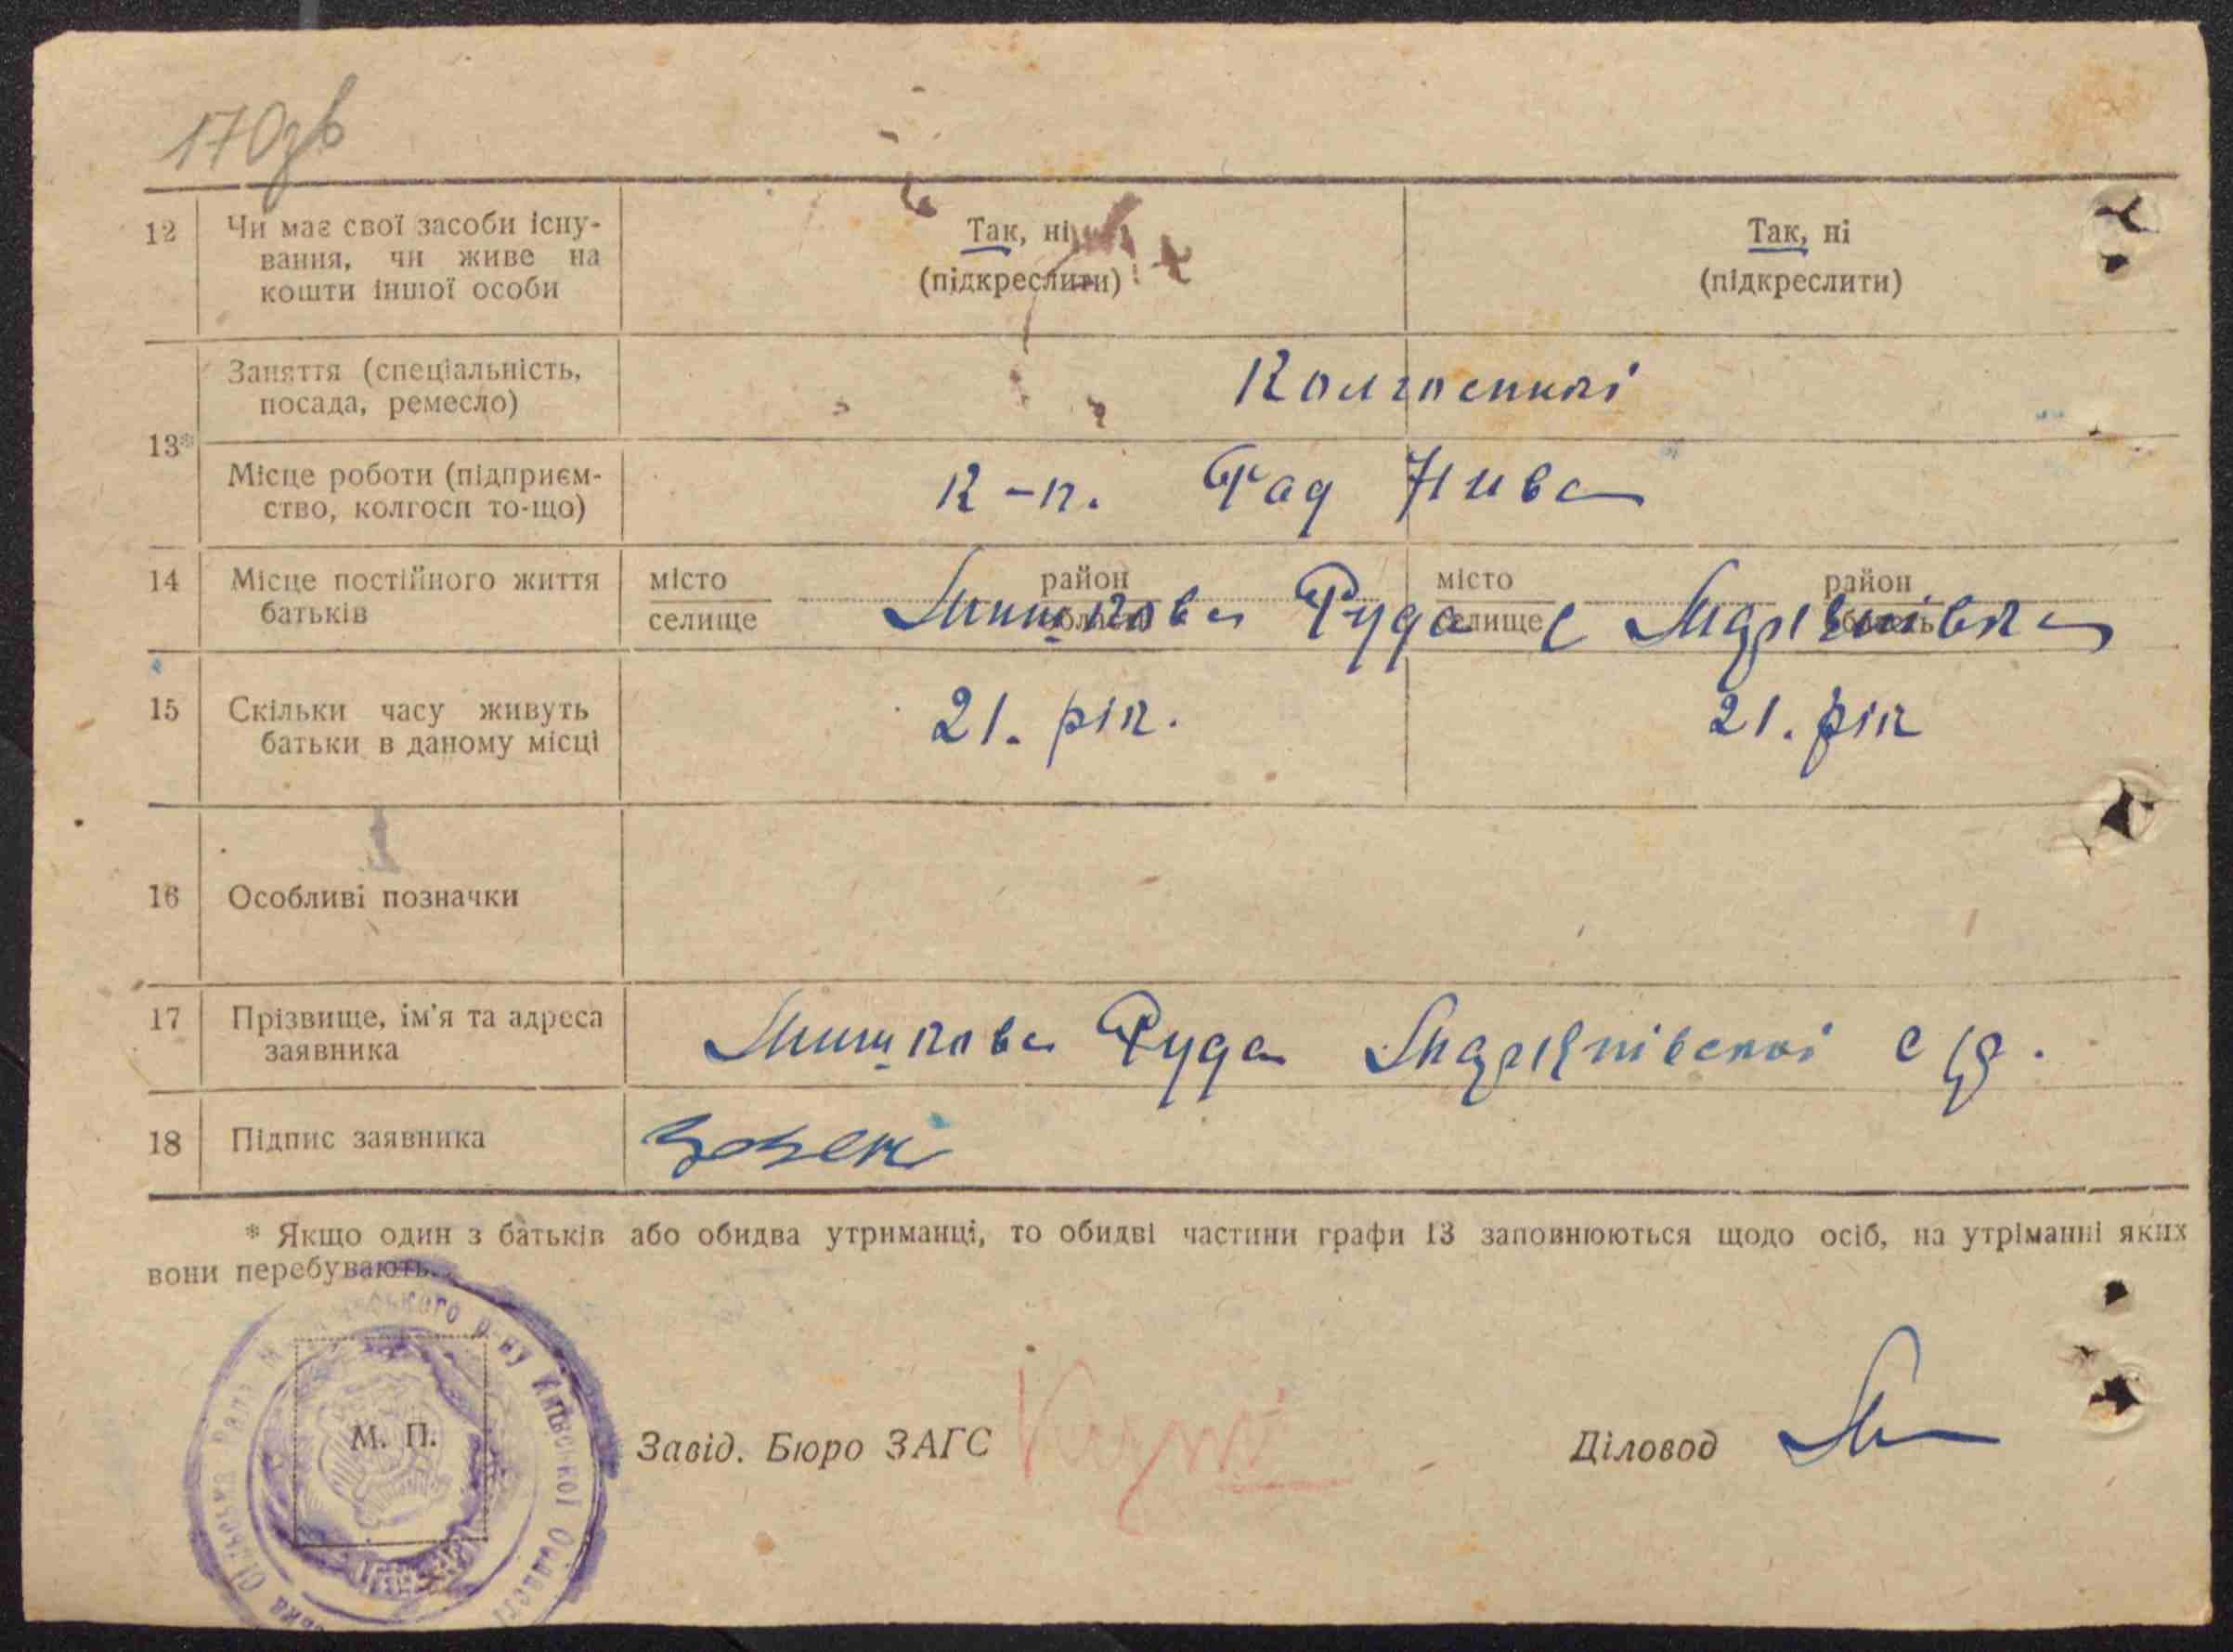 170зв
12 Чи має свої засоби існу-
вання, чи живе на
кошти іншої особи
Так, ні
(підкреслити)
Так, ні
(підкреслити)
13*
Заняття (спеціальність,
посада, ремесло)
Колгоспникі
Місце роботи (підприєм-
ство, колгосп то-що)
К-п. Рад Нива
14 Місце постійного життя
батьків
місто
селище
район
область
місто
селище
район
область
Мишкова Руда с
15 Скільки часу живуть
батьки в даному місці
21. рік.
21. рік
16 Особливі позначки
17 Прізвище, ім'я та адреса
заявника
Мишкова Руда с/р.
18 Підпис заявника
* Якщо один з батьків або обидва утриманці, то обидві частини графи 13 заповнюються щодо осіб, на утріманні яких
вони перебувають.
М. П.
Сільська Рада р-ну Київської Області
Завід. Бюро ЗАГС
Діловод